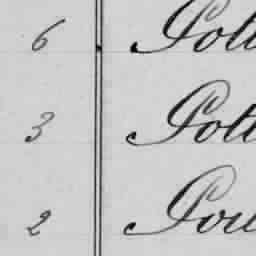 6 Pott
3 Pott
2 Pou